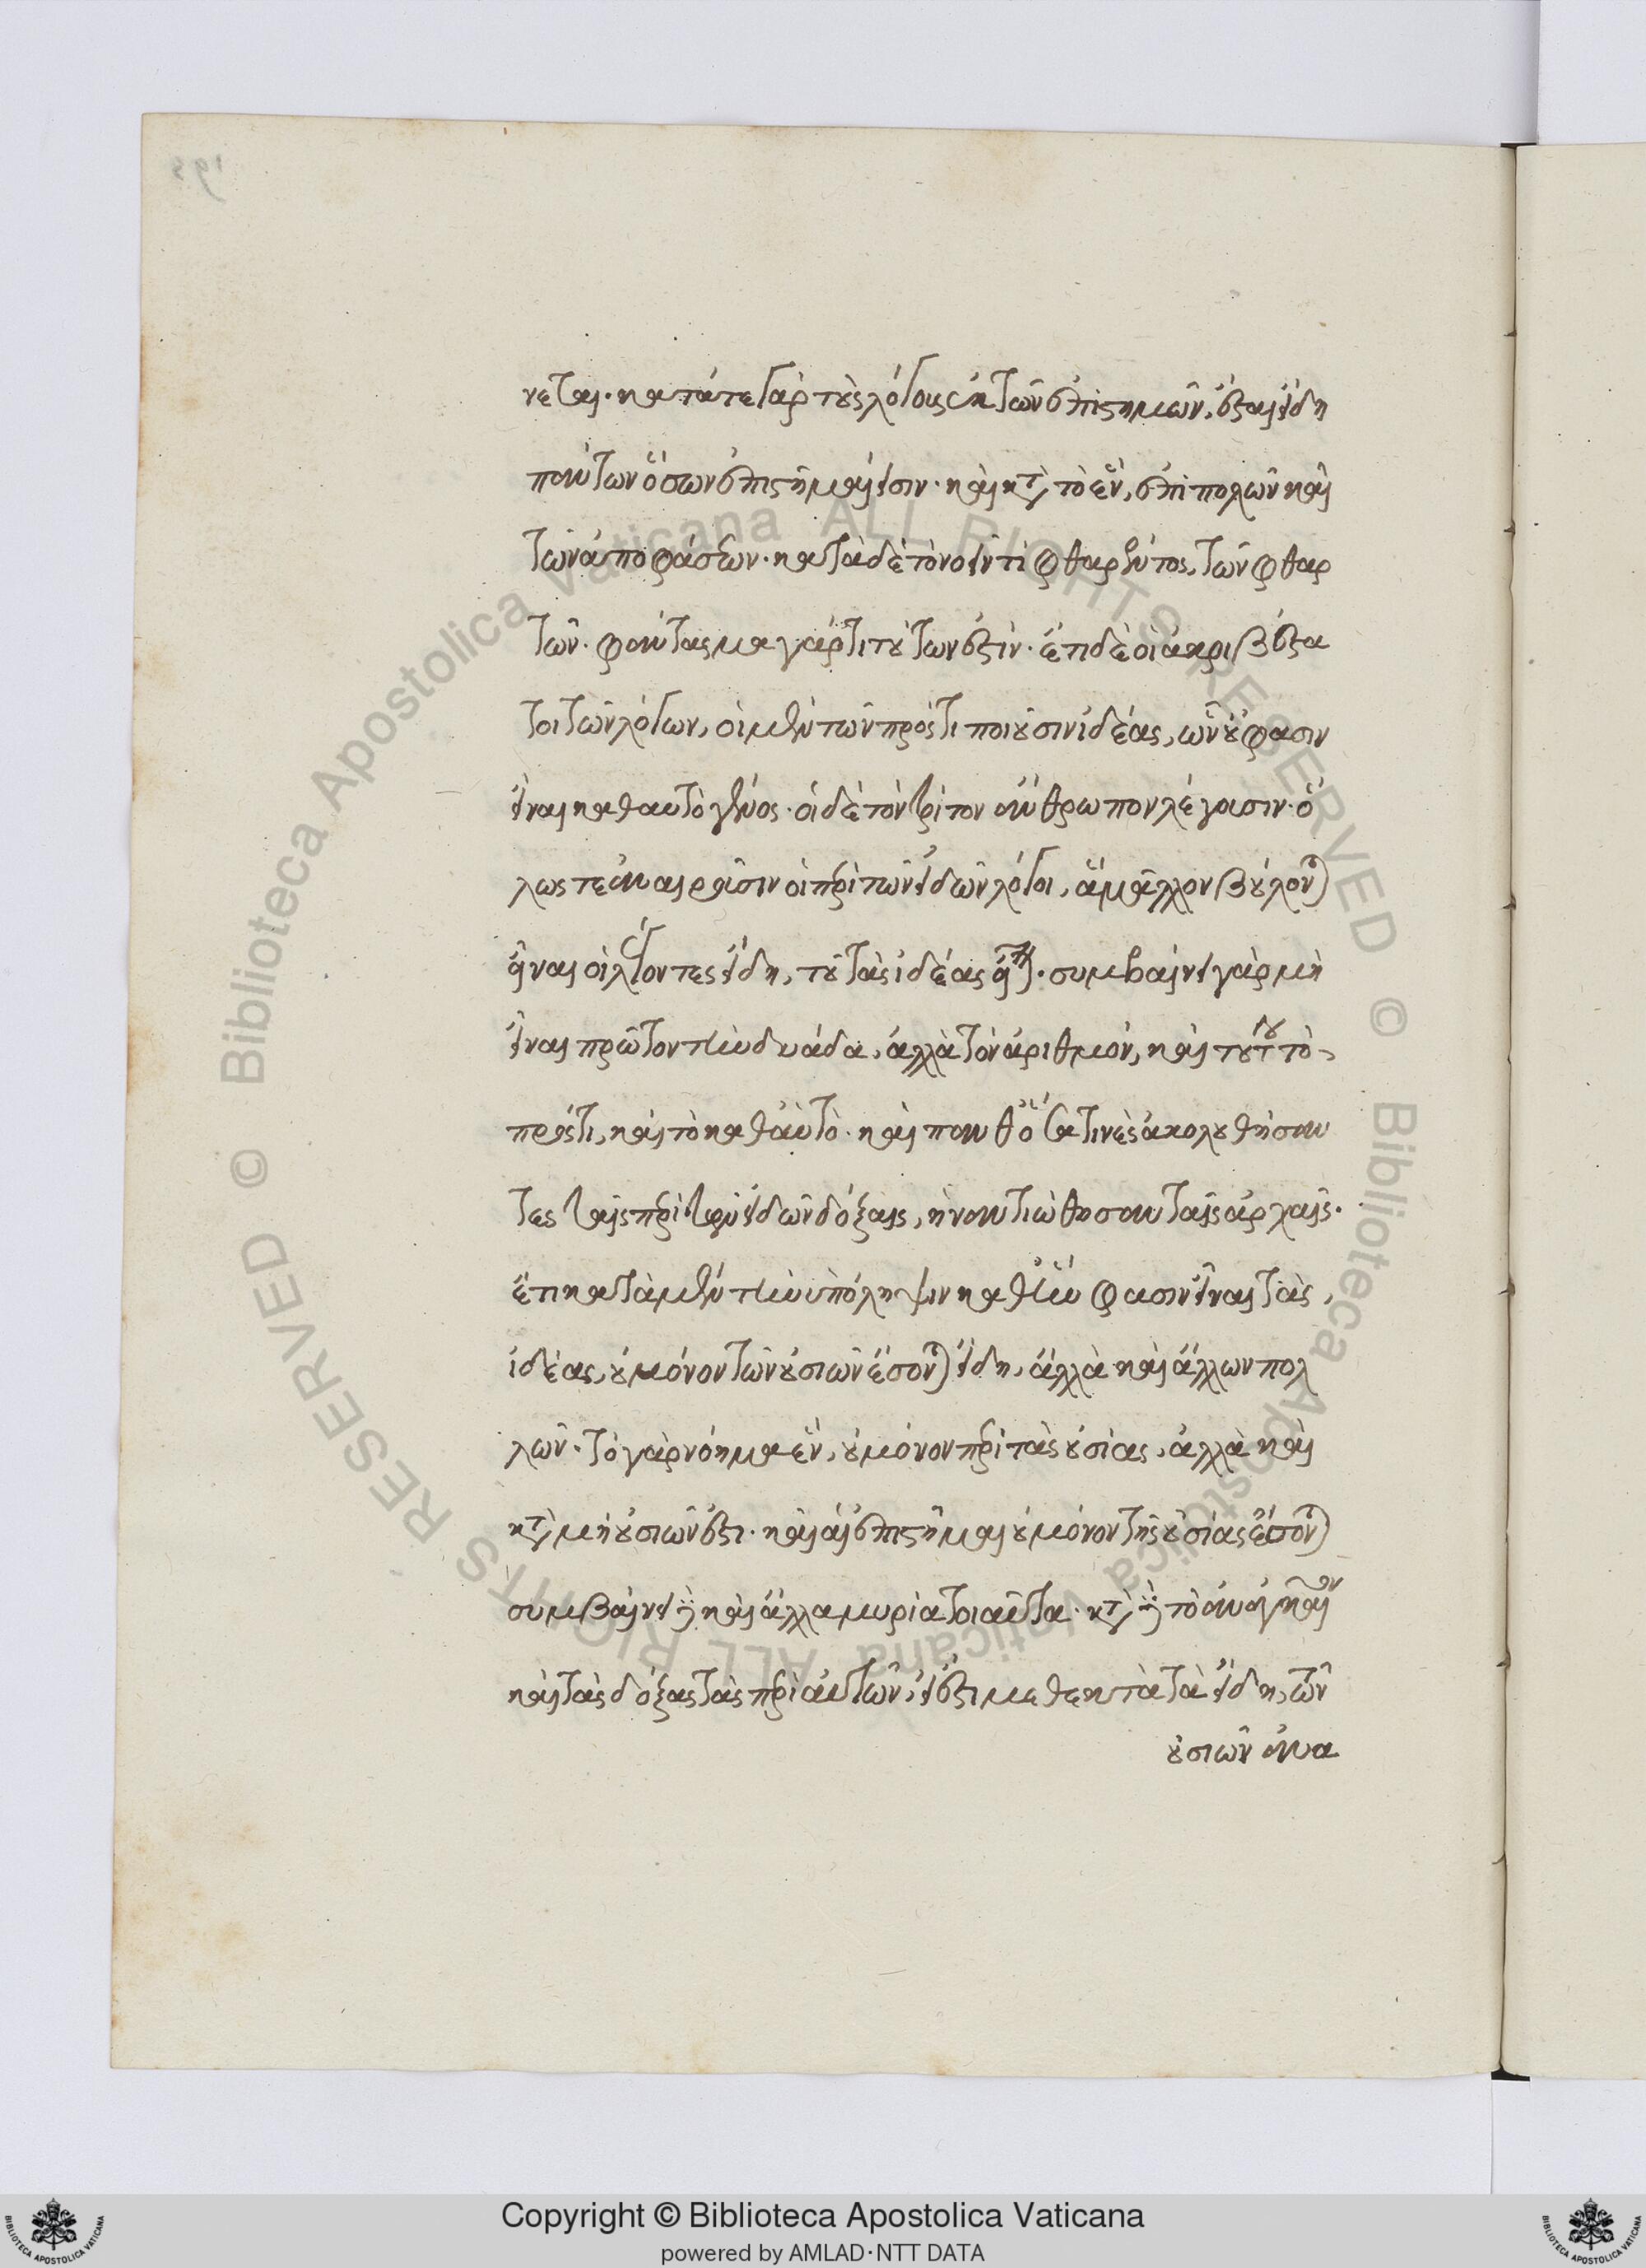 νεται· κατά τε γὰρ τοὺς λόγους ἐκ τῶν ἐπιστημῶν, ἔσται εἴδη
πάντων ὅσων ἐπιστῆμαι εἰσιν· καὶ κατὰ τὸ ἓν, ἐπὶ πολῶν καὶ
τῶν ἀποφάσεων· κατὰ δὲ τὸ νοεῖν τὶ φθαρέντος, τῶν φθαρ
τῶν· φάντασμα γάρ τι τούτων ἐστίν· ἔτι δὲ οἱ ἀκριβέστα
τοι τῶν λόγων, οἱ μὲν τῶν πρός τι ποιοῦσιν ἰδέας, ὧν οὔ φασιν
εἶναι καθαυτὸ γένος· οἱ δὲ τὸν τρίτον ἄνθρωπον λέγουσιν· ὅ
λως τε ἀναιροῦσιν οἱ περὶ τῶν εἰδῶν λόγοι, ἃ μᾶλλον βούλονται
εἶναι οἱ λέγοντες εἴδη, τοῦ τὰς ἰδέας εἶναι· συμβαίνει γὰρ μὴ
εἶναι πρῶτον τὴν δυάδα, ἀλλὰ τὸν ἀριθμόν, καὶ τούτου τὸ
πρός τι, καὶ τὸ καθ' αὑτὸ· καὶ πάνθ' ὅσα τινὲς ἀκολουθήσαν
τες ταῖς περὶ τῶν εἰδῶν δόξαις, ἠναντιώθησαν ταῖς ἀρχαῖς·
ἔτι κατὰ μὲν τὴν ὑπόληψιν καθ' ἥν φασιν εἶναι τὰς
ἰδέας, οὐ μόνον τῶν οὐσιῶν ἔσονται εἴδη, ἀλλὰ καὶ ἄλλων πολ
λῶν· τὸ γὰρ νόημα ἓν, οὐ μόνον περὶ τὰς οὐσίας, ἀλλὰ καὶ
κατὰ μὴ οὐσιῶν ἐστι· καὶ αἱ ἐπιστῆμαι οὐ μόνον τῆς οὐσίας ἔσονται
συμβαίνει δὲ καὶ ἄλλα μυρία τοιαῦτα· κατὰ δὲ τὸ ἀναγκαῖον
καὶ τὰς δόξας τὰς περὶ αὐτῶν, εἰ ἔστι μεθεκτὰ τὰ εἴδη, τῶν
οὐσιῶν ἀνα
Copyright © Biblioteca Apostolica Vaticana
powered by AMLAD·NTT DATA